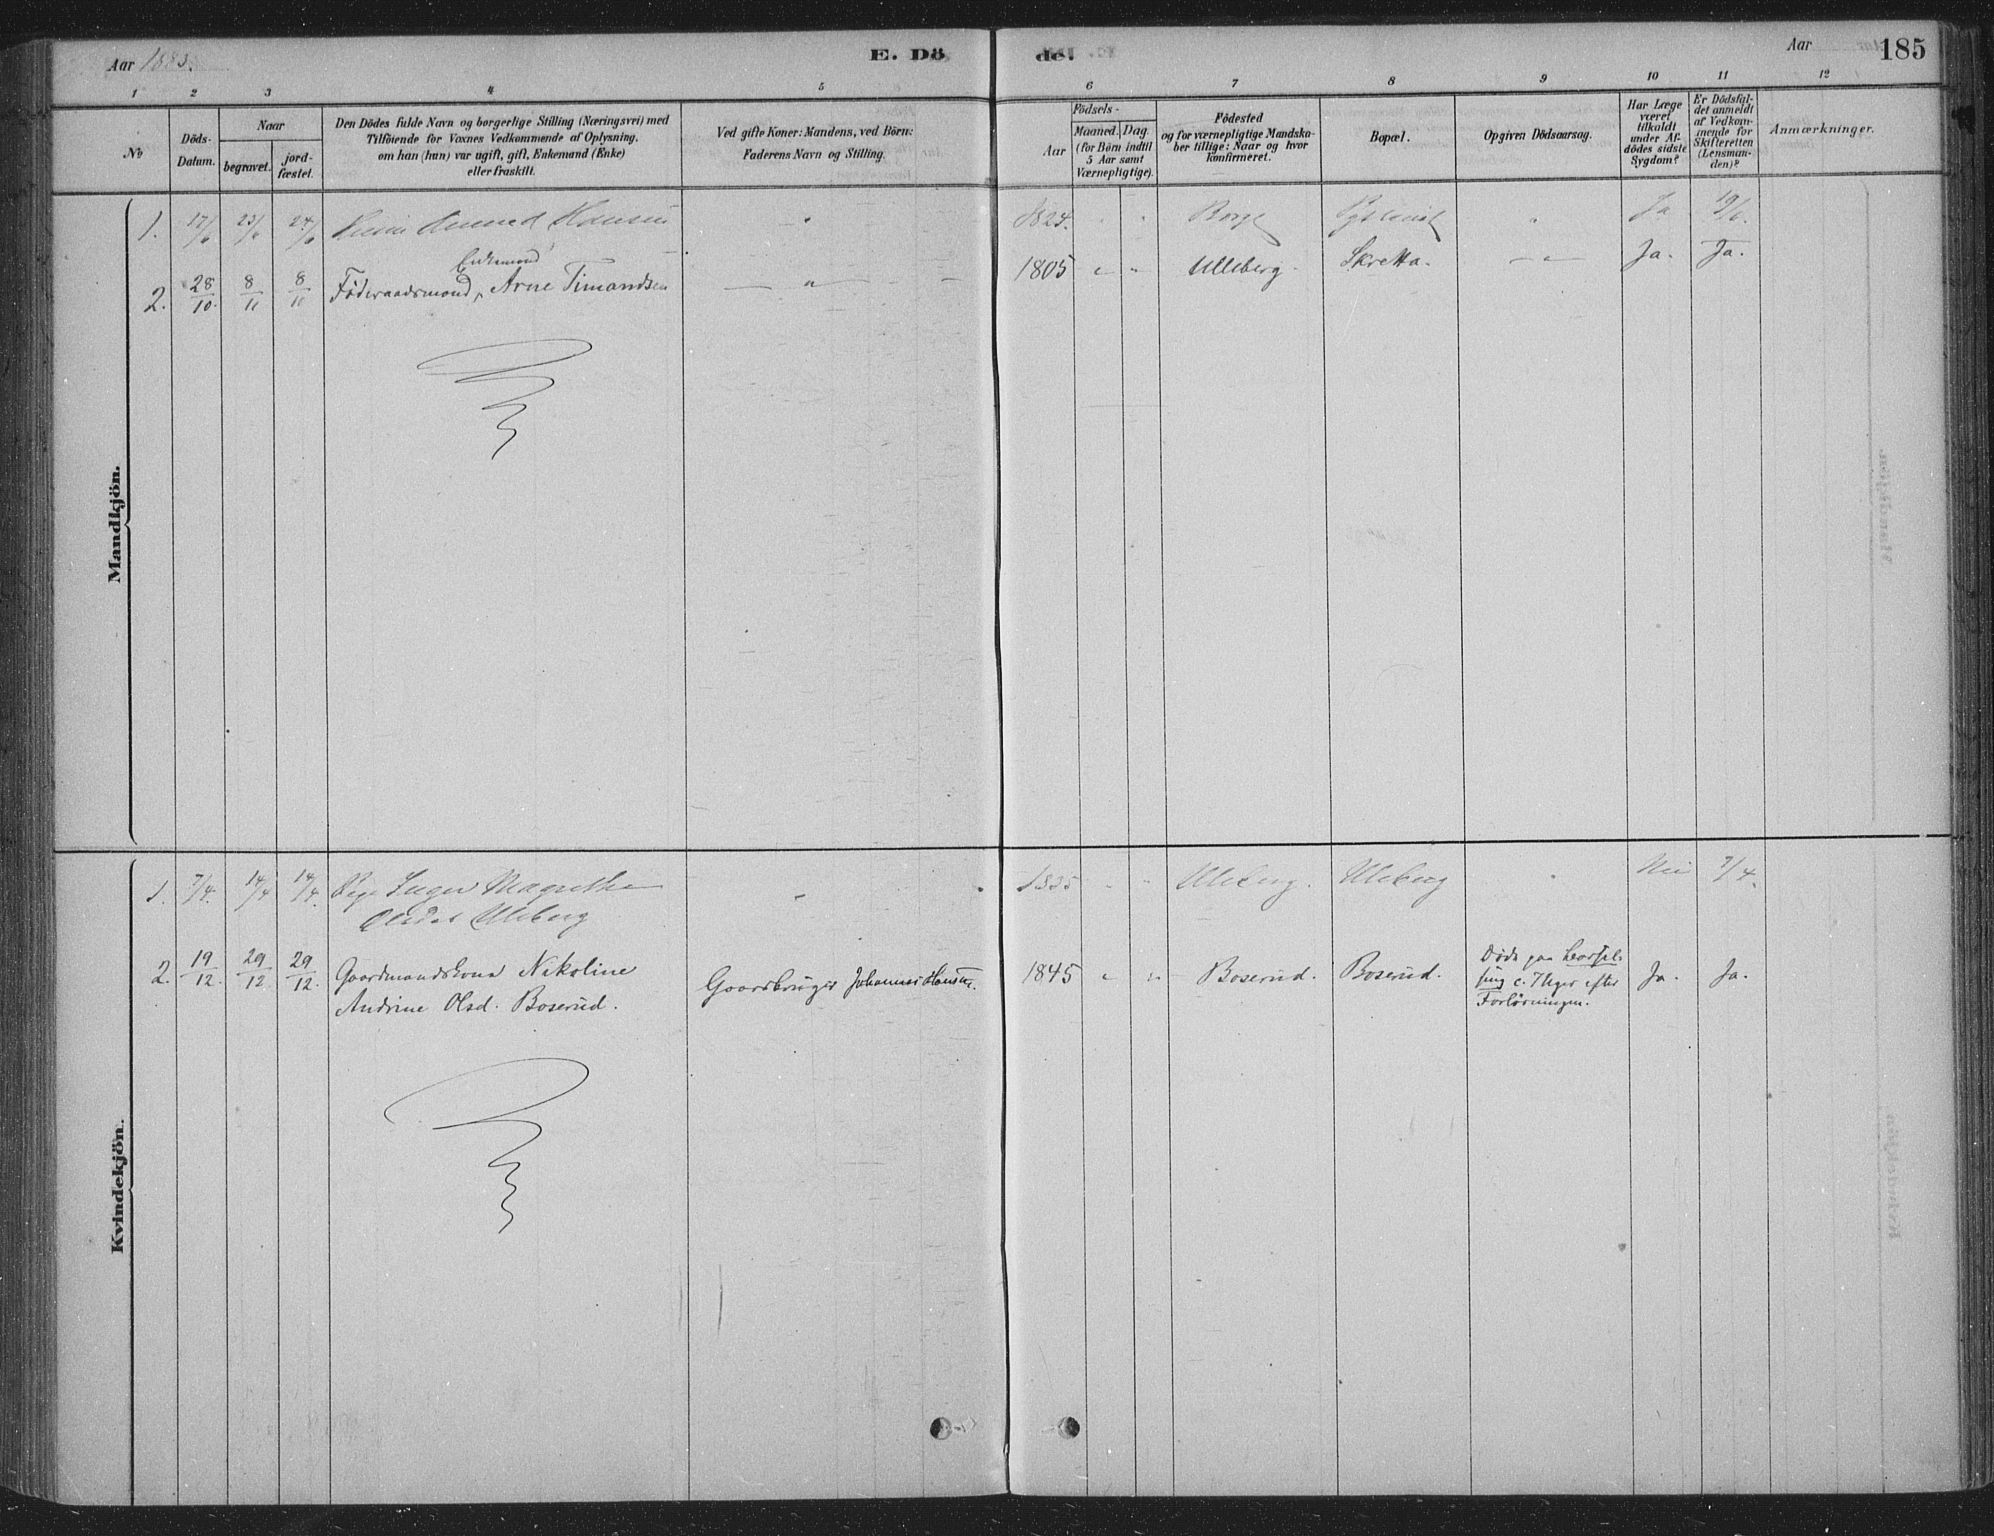 Aar 1883.
E. Dö
de.
Aar
185
1 2 3 4 5 6 7 8 9 10 11 12
No
Döds-
Datum.
Naar
begravet.
jord-
fæstet.
Den Dödes fulde Navn og borgerlige Stilling (Næringsvei) med
Tilföiende for Voxnes Vedkommende af Oplysning,
om han (hun) var ugift, gift, Enkemand (Enke)
eller fraskilt.
Ved gifte Koner: Mandens, ved Börn:
Faderens Navn og Stilling.
Födsels-
Aar
Maaned. Dag.
(for Börn indtil
5 Aar samt
Værnepligtige).
Födested
og for værnepligtige Mandska-
ber tillige: Naar og hvor
konfirmeret.
Bopæl.
Opgiven Dödsaarsag.
Har Læge
været
tilkaldt
under Af-
dödes sidste
Sygdom?
Er Dödsfal-
det anmeldt
af Vedkom-
mende for
Skifteretten
(Lensman-
den)?
Anmærkninger.
Mandkjön.
1. 17/6 23/6 24/6 Hansen " 1824. " " Borge " Ja 19/6.
Enkemand
2. 28/10. 8/11 8/11 Föderaadsmand, Arne Timandsen — " — 1805 " " Ulleberg. Skretta. — " — Ja. Ja.
Kvindekjön.
1. 7/4. 14/4 14/4. Pige Inger Magrethe " 1835 " " Uleberg. Uleberg " Nei 7/4.
Olsdat Uleberg
2. 19/12. 29/12 29/12. Gaardmandskona Nikoline Gaardbruger Johannes Hansen. 1845 " " Boserud. Boserud. Döde paa Ja. Ja.
Andrine Olsd. Boserud. c. 7 Uger efter
Forlösningen.